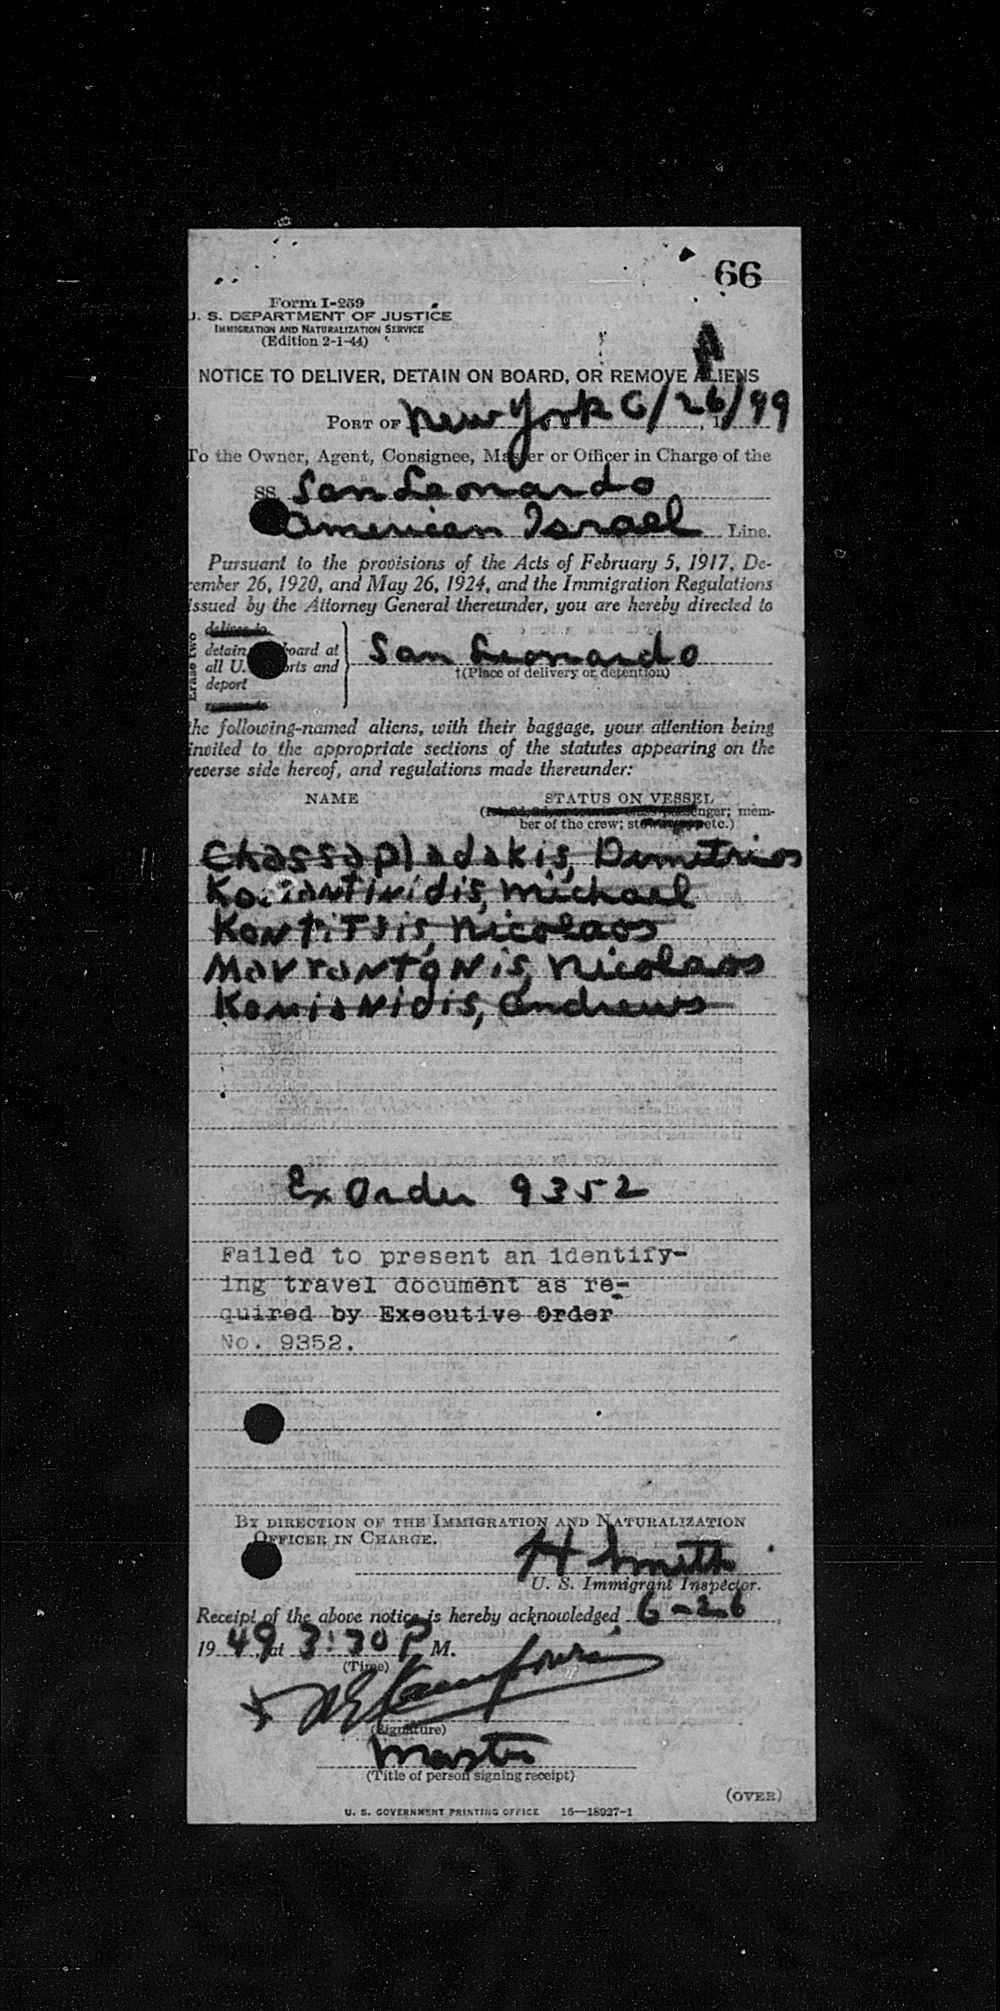 66
Form I-259
U. S. DEPARTMENT OF JUSTICE
IMMIGRATION AND NATURALIZATION SERVICE
(Edition 2-1-44)
NOTICE TO DELIVER, DETAIN ON BOARD, OR REMOVE ALIENS
PORT OF New York 6/26/49
To the Owner, Agent, Consignee, Master or Officer in Charge of the
SS San Leonardo
American Israel Line.
Pursuant to the provisions of the Acts of February 5, 1917, De-
cember 26, 1920, and May 26, 1924, and the Immigration Regulations
issued by the Attorney General thereunder, you are hereby directed to
Erase two
deliver to
detain board at
all U. ports and
deport
remove to
San Leonardo
†(Place of delivery or detention)
the following-named aliens, with their baggage, your attention being
invited to the appropriate sections of the statutes appearing on the
reverse side hereof, and regulations made thereunder:
NAME STATUS ON VESSEL
passenger; mem-
ber of the crew; etc.)
Chassapladakis, Dimitrios
Michael
Kontitsis, Nicolaos
Mavrantonis, Nicolaos
Komianidis, Andrews
Ex Order 9352
Failed to present an identify-
ing travel document as re-
quired by Executive Order
No. 9352.
BY DIRECTION OF THE IMMIGRATION AND NATURALIZATION
OFFICER IN CHARGE.
H Smith
U. S. Immigrant Inspector.
Receipt of the above notice is hereby acknowledged 6-26,
1949, at 3:30 P M.
(Time)
(Signature)
Master
(Title of person signing receipt)
(OVER)
U. S. GOVERNMENT PRINTING OFFICE 16—18927-1